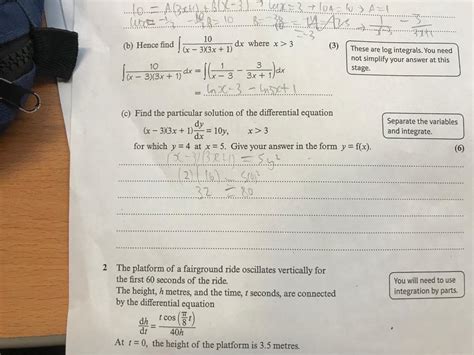 10 = A(3x+1) + B(x-3)
A=1
B=
=-3
1/x-3 - 3/3x+1
(b) Hence find ∫ 10/(x − 3)(3x + 1) dx where x > 3 (3)
These are log integrals. You need
not simplify your answer at this
stage.
∫ 10/(x − 3)(3x + 1) dx = ∫(1/x − 3 − 3/3x + 1)dx
= ln x-3 - ln 3x+1
(c) Find the particular solution of the differential equation
(x − 3)(3x + 1)dy/dx = 10y, x > 3
Separate the variables
and integrate.
for which y = 4 at x = 5. Give your answer in the form y = f(x). (6)
(x-3)(3x+1) = 5y²
(2)(16) = 5(4)²
32 = 80
2 The platform of a fairground ride oscillates vertically for
the first 60 seconds of the ride.
You will need to use
integration by parts.
The height, h metres, and the time, t seconds, are connected
by the differential equation
dh/dt = t cos(π/8 t)/40h
At t = 0, the height of the platform is 3.5 metres.